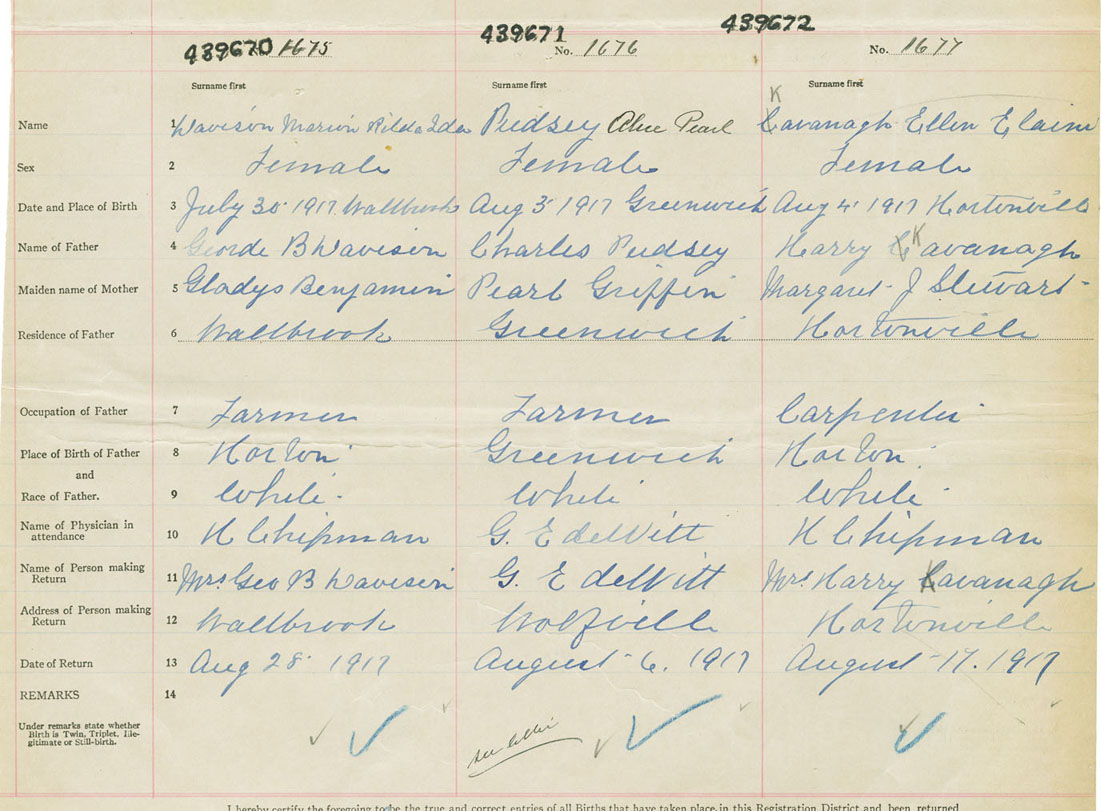 439670 1675 439671 No. 1676 439672 No. 1677
Surname first Surname first Surname first
K
Name 1 Davison Marion Rilda Ida Pudsey Alice Pearl Kavanagh Ellen Elaine
Sex 2 Female Female Female
Date and Place of Birth 3 July 30 1917 Wallbrook Aug 3 1917 Greenwich Aug 4 1917 Hortonville
Name of Father 4 George B Davison Charles Pudsey Harry Kavanagh
Maiden name of Mother 5 Gladys Benjamin Pearl Griffin Margaret J Stewart
Residence of Father 6 Wallbrook Greenwich Hortonville
Occupation of Father 7 Farmer Farmer Carpenter
Place of Birth of Father 8 Horton Greenwich Horton
and
Race of Father. 9 White White White
Name of Physician in
attendance 10 H Chipman G. E deWitt H Chipman
Name of Person making
Return 11 Mrs Geo B Davison G. E deWitt Mrs Harry Kavanagh
Address of Person making
Return 12 Wallbrook Wolfville Hortonville
Date of Return 13 Aug 28 1917 August 6. 1917 August 17. 1917
REMARKS 14
Under remarks state whether
Birth is Twin, Triplet, Ille-
gitimate or Still-birth.
see letter
I hereby certify the foregoing to be the true and correct entries of all Births that have taken place in this Registration District and been returned